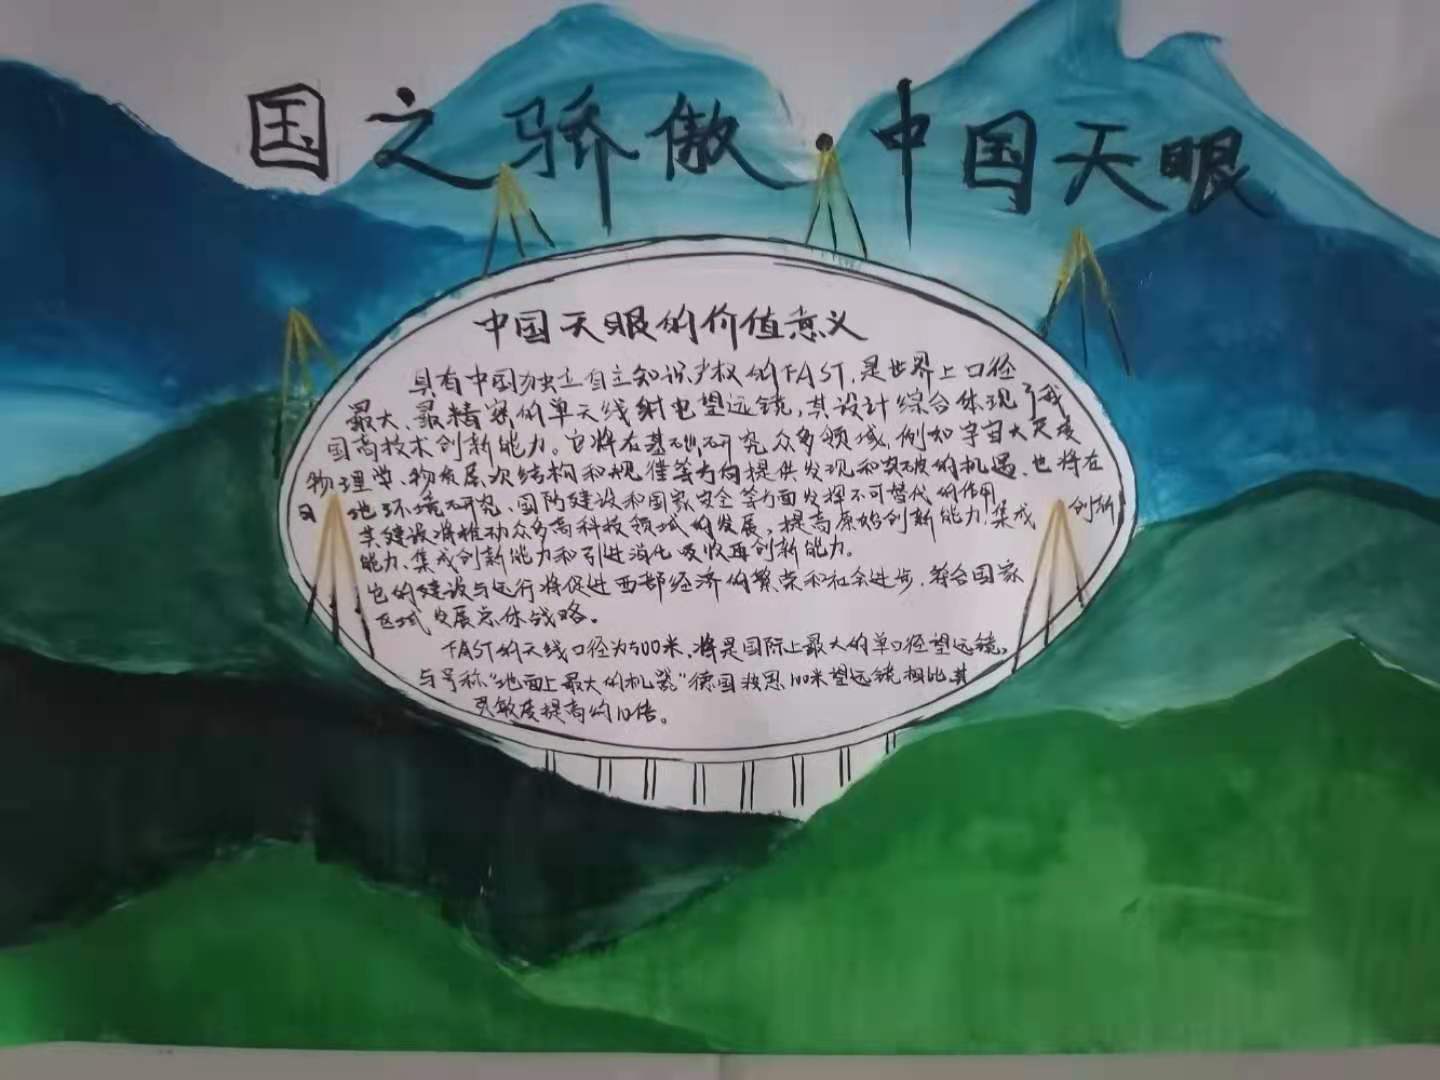 国之骄傲·中国天眼
中国天眼的价值意义
具有中国独立自主知识产权的FAST,是世界上口径
最大、最精密的单天线射电望远镜,其设计综合体现了我
国高技术创新能力。它将在基础研究众多领域,例如宇宙大尺度
物理学、物质层次结构和规律等方向提供发现和突破的机遇,也将在
日地环境研究、国防建设和国家安全等方面发挥不可替代的作用,
建设将推动众多高科技领域的发展,提高原始创新能力,集成创新
能力、集成创新能力和引进消化吸收再创新能力。
它的建设与运行将促进西部经济的繁荣和社会进步,符合国家
区域发展总体战略。
FAST的天线口径为500米,将是国际上最大的单口径望远镜,
与号称“地面上最大的机器”德国波恩100米望远镜相比,其
灵敏度提高约10倍。